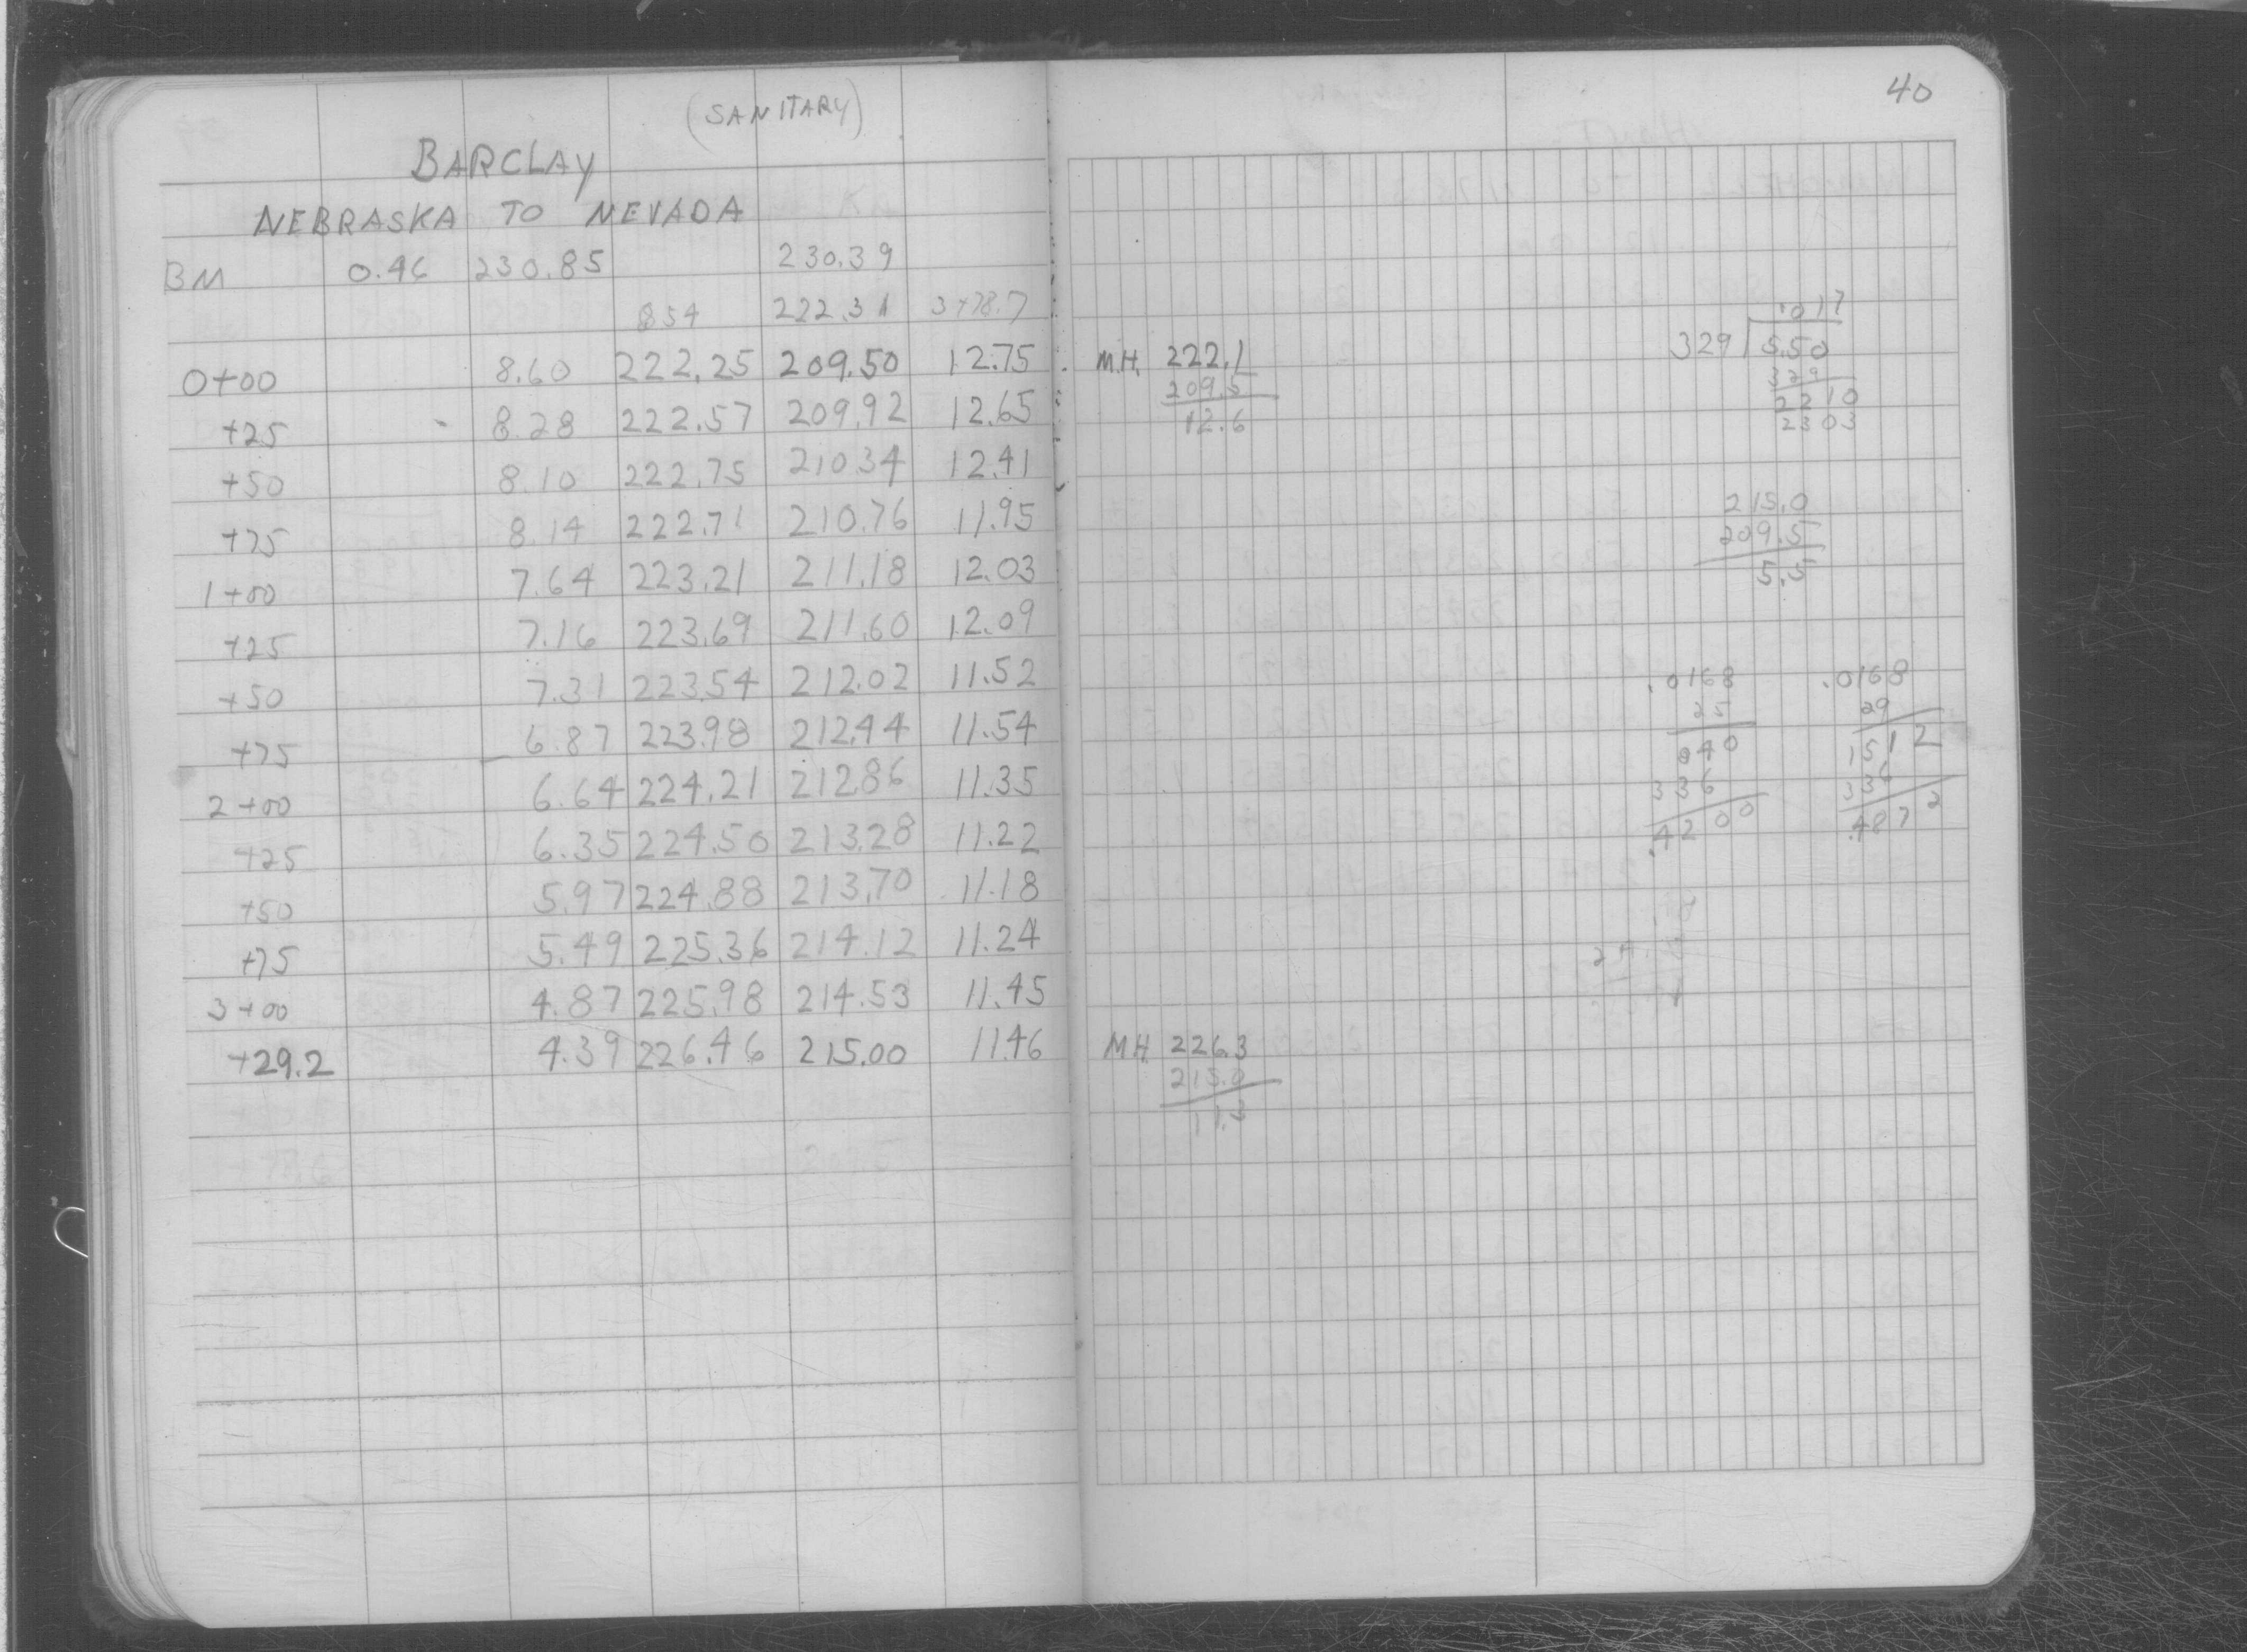 (SANITARY)
BARCLAY
NEBRASKA TO NEVADA
BM 0.46 230.85 230.39
8.54 222.31 3+78.7
0+00 8.60 222.25 209.50 12.75
+25 8.28 222.57 209.92 12.65
+50 8.10 222.75 210.34 12.41
+75 8.14 222.71 210.76 11.95
1+00 7.64 223.21 211.18 12.03
+25 7.16 223.69 211.60 12.09
+50 7.31 223.54 212.02 11.52
+75 6.87 223.98 212.44 11.54
2+00 6.64 224.21 212.86 11.35
+25 6.35 224.50 213.28 11.22
+50 5.97 224.88 213.70 11.18
+75 5.49 225.36 214.12 11.24
3+00 4.87 225.98 214.53 11.45
+29.2 4.39 226.46 215.00 11.46
40
M.H. 222.1
209.5
12.6
.017
329 5.50
329
2210
2303
215.0
209.5
5.5
.0168 .0168
25 29
840 1512
336 336
.4200 .4872
M.H. 226.3
215.0
11.3